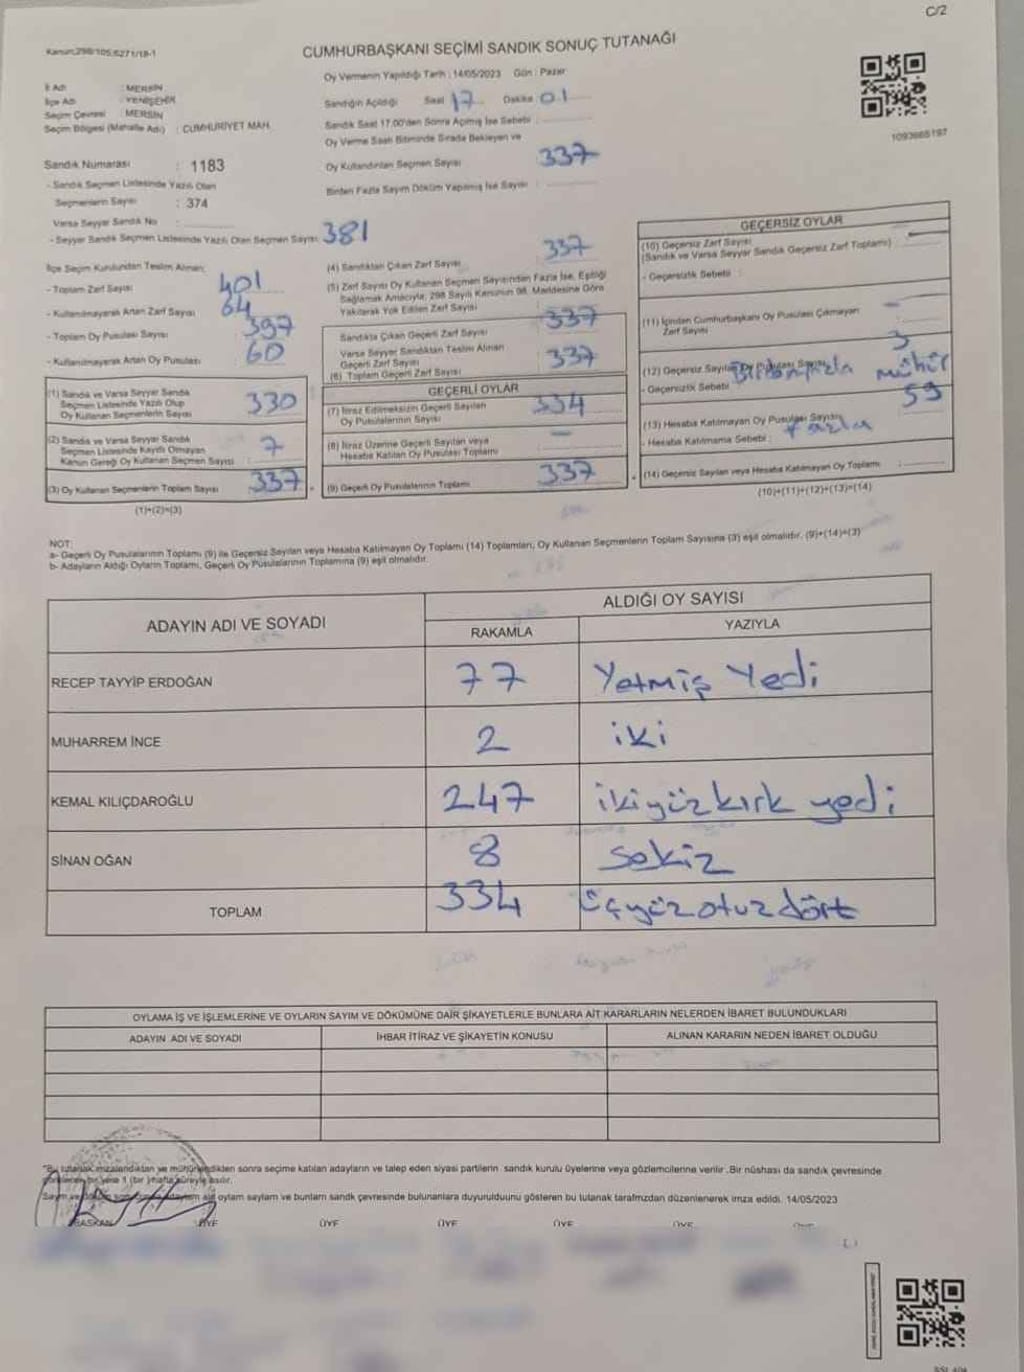 C/2
Kanun:298/105,6271/18-1
CUMHURBAŞKANI SEÇİMİ SANDIK SONUÇ TUTANAĞI
Oy Vermenin Yapıldığı Tarih : 14/05/2023 Gün : Pazar
İl Adı : MERSİN
İlçe Adı : YENİŞEHİR
Seçim Çevresi : MERSİN
Seçim Bölgesi (Mahalle Adı) : CUMHURİYET MAH.
Sandığın Açıldığı Saat 17 Dakika 01
Sandık Saat 17.00'den Sonra Açılmış İse Sebebi :
Oy Verme Saati Bitiminde Sırada Bekleyen ve
Oy Kullandırılan Seçmen Sayısı 337
Birden Fazla Sayım Döküm Yapılmış İse Sayısı :
1093665197
Sandık Numarası : 1183
- Sandık Seçmen Listesinde Yazılı Olan
Seçmenlerin Sayısı : 374
Varsa Seyyar Sandık No :
- Seyyar Sandık Seçmen Listesinde Yazılı Olan Seçmen Sayısı: 381
İlçe Seçim Kurulundan Teslim Alınan;
- Toplam Zarf Sayısı 401
- Kullanılmayarak Artan Zarf Sayısı 64
- Toplam Oy Pusulası Sayısı 397
- Kullanılmayarak Artan Oy Pusulası 60
(1) Sandık ve Varsa Seyyar Sandık
Seçmen Listesinde Yazılı Olup
Oy Kullanan Seçmenlerin Sayısı 330
(2) Sandık ve Varsa Seyyar Sandık
Seçmen Listesinde Kayıtlı Olmayan
Kanun Gereği Oy Kullanan Seçmen Sayısı 7
(3) Oy Kullanan Seçmenlerin Toplam Sayısı 337
(1)+(2)=(3)
(4) Sandıktan Çıkan Zarf Sayısı 337
(5) Zarf Sayısı Oy Kullanan Seçmen Sayısından Fazla İse, Eşitliği
Sağlamak Amacıyla, 298 Sayılı Kanunun 98. Maddesine Göre
Yakılarak Yok Edilen Zarf Sayısı
Sandıkta Çıkan Geçerli Zarf Sayısı 337
Varsa Seyyar Sandıktan Teslim Alınan
Geçerli Zarf Sayısı
(6) Toplam Geçerli Zarf Sayısı 337
GEÇERLİ OYLAR
(7) İtiraz Edilmeksizin Geçerli Sayılan
Oy Pusulalarının Sayısı 334
(8) İtiraz Üzerine Geçerli Sayılan veya
Hesaba Katılan Oy Pusulası Toplamı –
(9) Geçerli Oy Pusulalarının Toplamı 337
GEÇERSİZ OYLAR
(10) Geçersiz Zarf Sayısı
(Sandık ve Varsa Seyyar Sandık Geçersiz Zarf Toplamı) –
- Geçersizlik Sebebi :
(11) İçinden Cumhurbaşkanı Oy Pusulası Çıkmayan
Zarf Sayısı –
(12) Geçersiz Sayılan Oy Pusulası Sayısı 3
- Geçersizlik Sebebi Birden fazla mühür
(13) Hesaba Katılmayan Oy Pusulası Sayısı 59
- Hesaba Katılmama Sebebi : fazla
(14) Geçersiz Sayılan veya Hesaba Katılmayan Oy Toplamı :
(10)+(11)+(12)+(13)=(14)
NOT:
a- Geçerli Oy Pusulalarının Toplamı (9) ile Geçersiz Sayılan veya Hesaba Katılmayan Oy Toplamı (14) Toplamları, Oy Kullanan Seçmenlerin Toplam Sayısına (3) eşit olmalıdır. (9)+(14)=(3)
b- Adayların Aldığı Oyların Toplamı, Geçerli Oy Pusulalarının Toplamına (9) eşit olmalıdır.
ADAYIN ADI VE SOYADI
ALDIĞI OY SAYISI
RAKAMLA YAZIYLA
RECEP TAYYİP ERDOĞAN 77 Yetmiş Yedi
MUHARREM İNCE 2 iki
KEMAL KILIÇDAROĞLU 247 ikiyüzkırk yedi
SİNAN OĞAN 8 Sekiz
TOPLAM 334 üçyüzotuzdört
OYLAMA İŞ VE İŞLEMLERİNE VE OYLARIN SAYIM VE DÖKÜMÜNE DAİR ŞİKAYETLERLE BUNLARA AİT KARARLARIN NELERDEN İBARET BULUNDUKLARI
ADAYIN ADI VE SOYADI İHBAR İTİRAZ VE ŞİKAYETİN KONUSU ALINAN KARARIN NEDEN İBARET OLDUĞU
*Bu tutanak imzalandıktan ve mühürlendikten sonra seçime katılan adayların ve talep eden siyasi partilerin sandık kurulu üyelerine veya gözlemcilerine verilir .Bir nüshası da sandık çevresinde
görülecek bir yere 1 (bir) hafta süreyle asılır.
oyların sayılarını ve bunların sandık çevresinde bulunanlara duyurulduunu gösteren bu tutanak tarafımızdan düzenlenerek imza edildi. 14/05/2023
BAŞKAN ÜYE ÜYE ÜYE ÜYE ÜYE